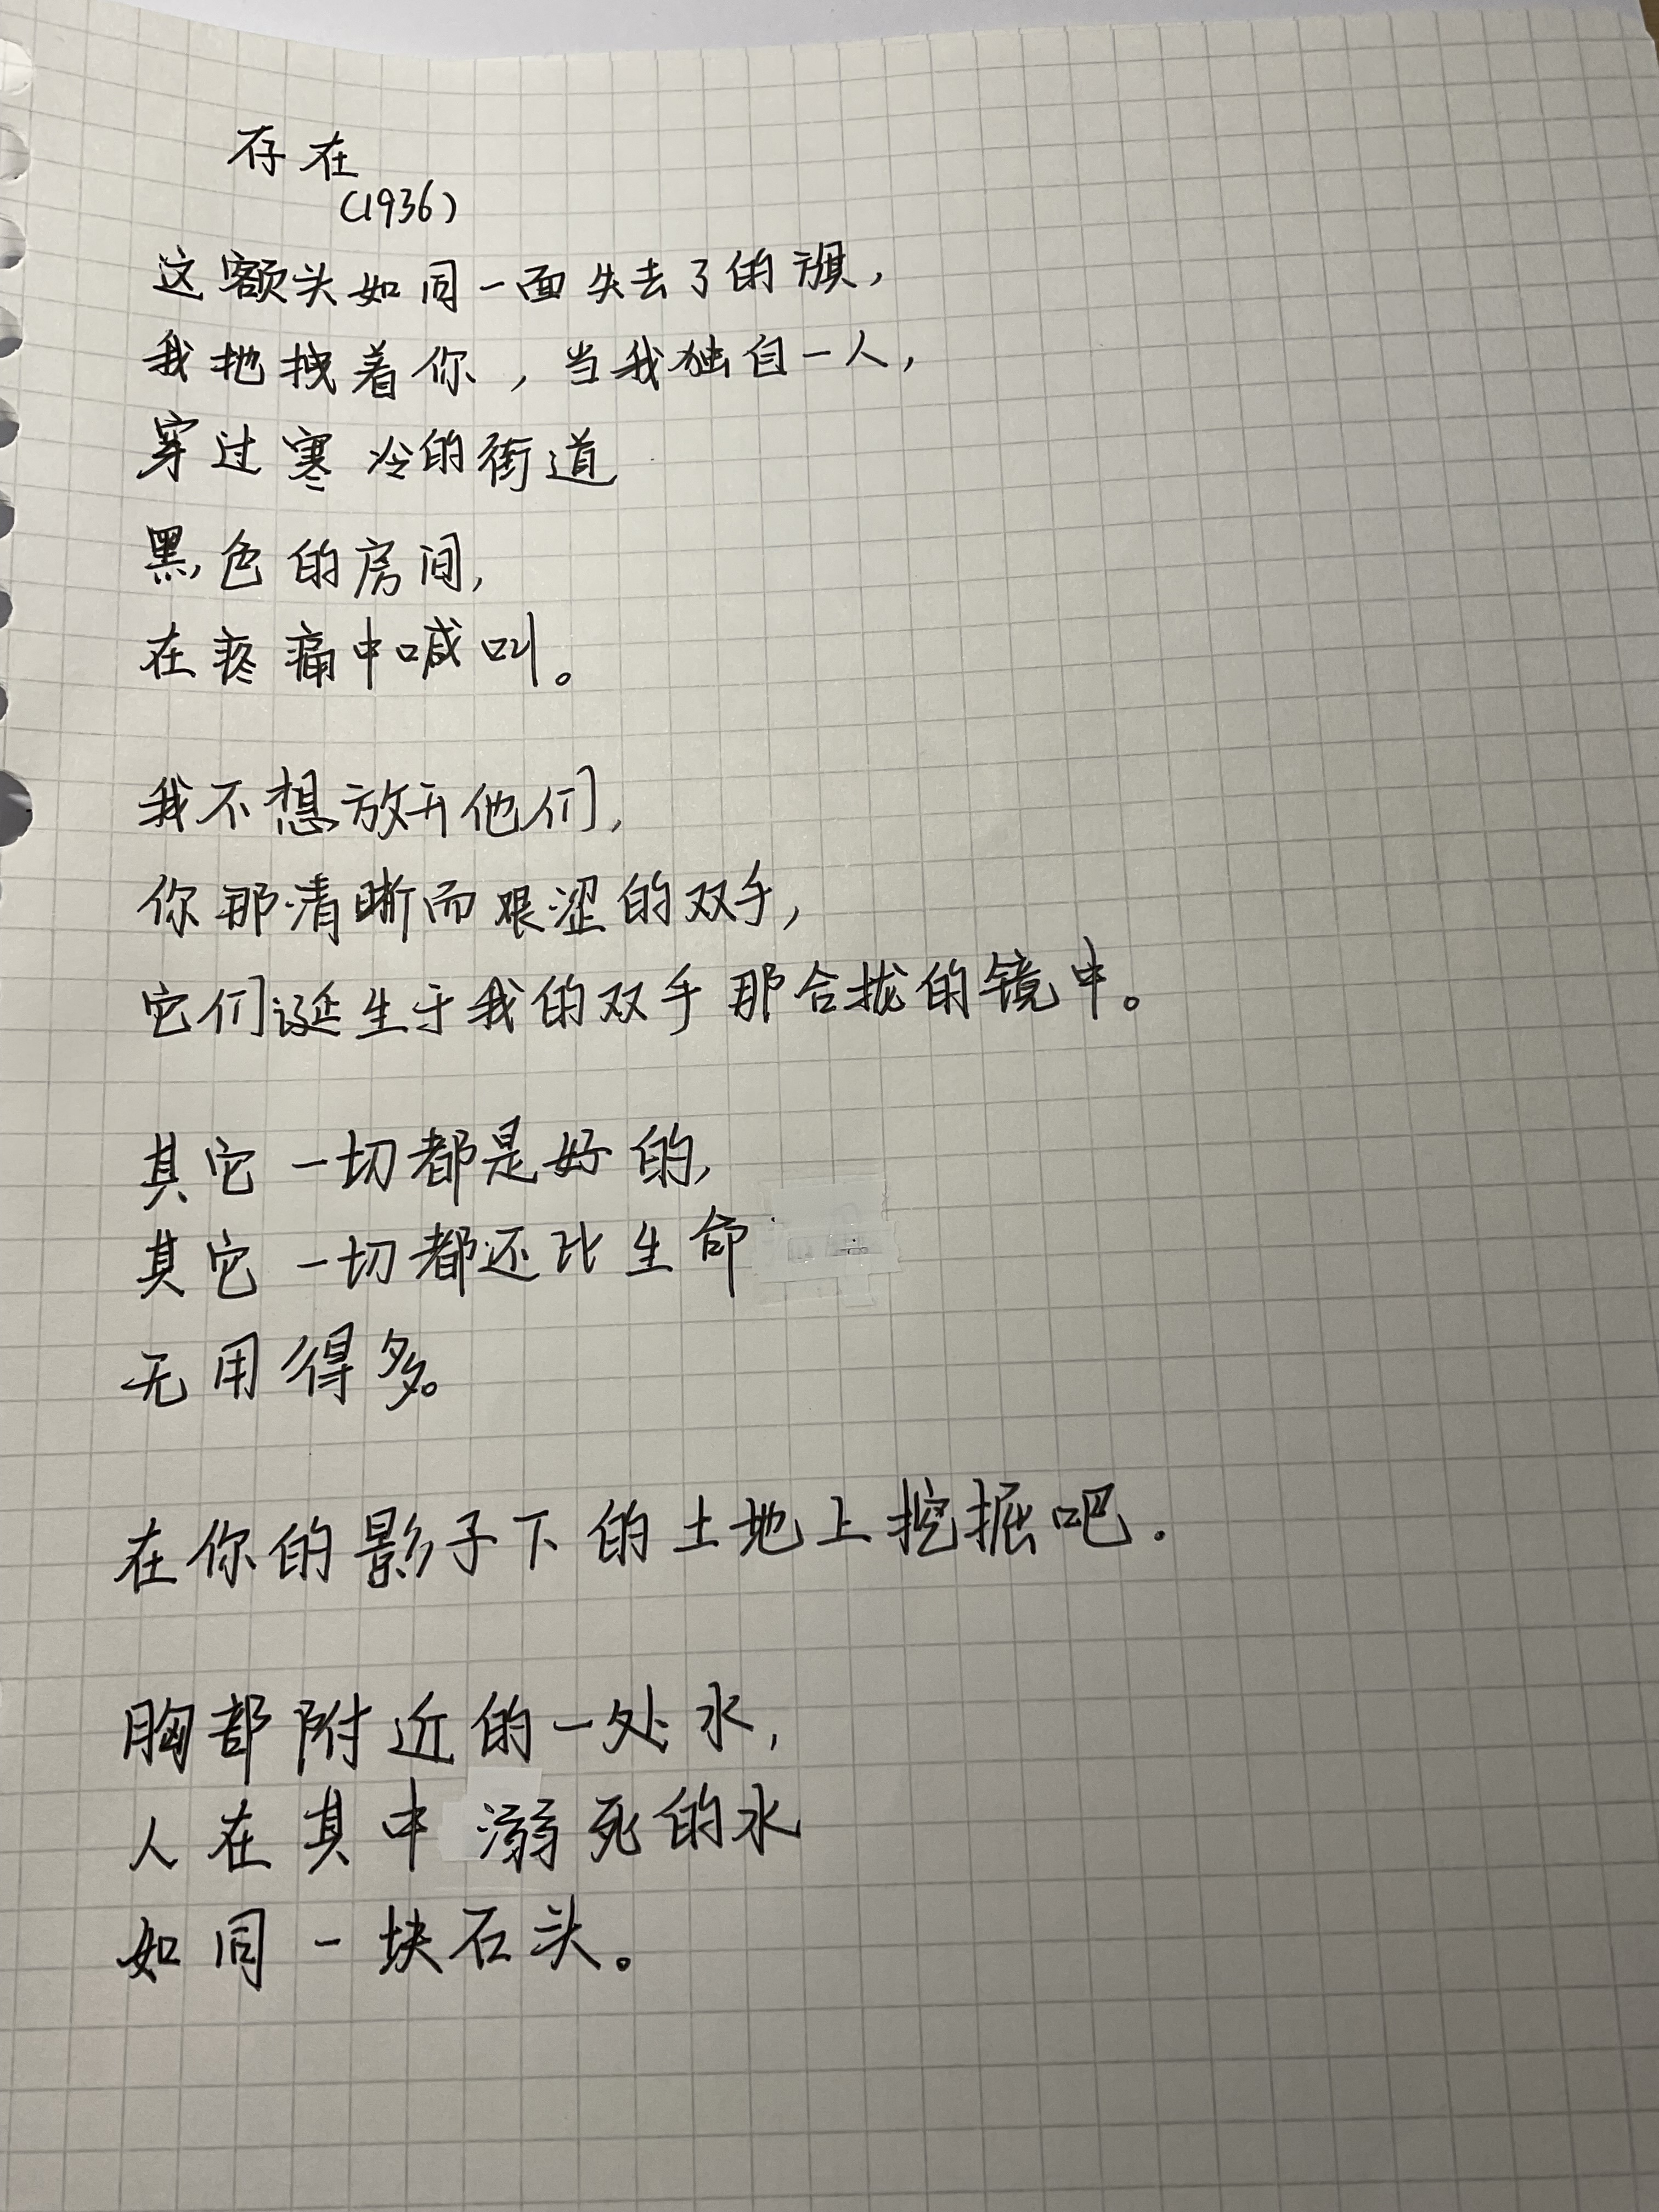 存在
(1936)
这额头如同一面失去了的旗，
我拖拽着你，当我独自一人，
穿过寒冷的街道
黑色的房间，
在疼痛中喊叫。
我不想放开他们，
你那清晰而艰涩的双手，
它们诞生于我的双手那合拢的镜中。
其它一切都是好的，
其它一切都还比生命
无用得多。
在你的影子下的土地上挖掘吧.
胸部附近的一处水，
人在其中溺死的水
如同一块石头。